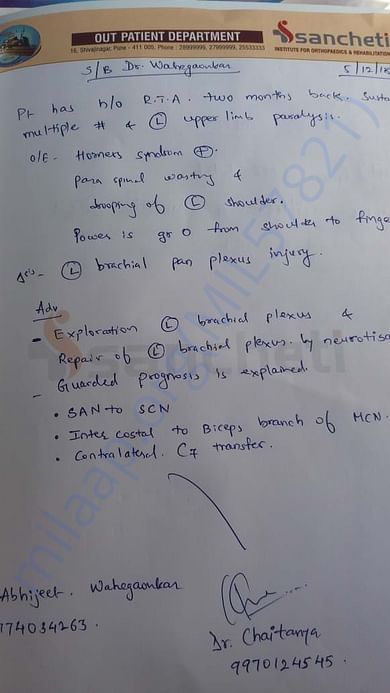 OUT PATIENT DEPARTMENT
sancheti
16, Shivajinagar, Pune - 411 005. Phone : 28999999, 27999999, 25533333
INSTITUTE FOR ORTHOPAEDICS & REHABILITATION
S/B Dr. Wahegaonkar
5/12/18
Pt has h/o R.T.A. two months back. Susta
multiple # & (L) upper limb paralysis.
O/E - Horners Syndrom (+).
Para spinal wasting &
drooping of (L) shoulder.
Power is gr 0 from shoulder to finge
(L) brachial pan plexus injury.
Adv
- Exploration (L) brachial plexus &
Repair of (L) brachial plexus by neurotisa
- Guarded prognosis is explained.
• SAN to SCN
• Inter costal to Biceps branch of MCN.
• Contralateral C7 transfer.
Abhijeet. Wahegaonkar
774034263.
Dr. Chaitanya
9970124545.
sancheti